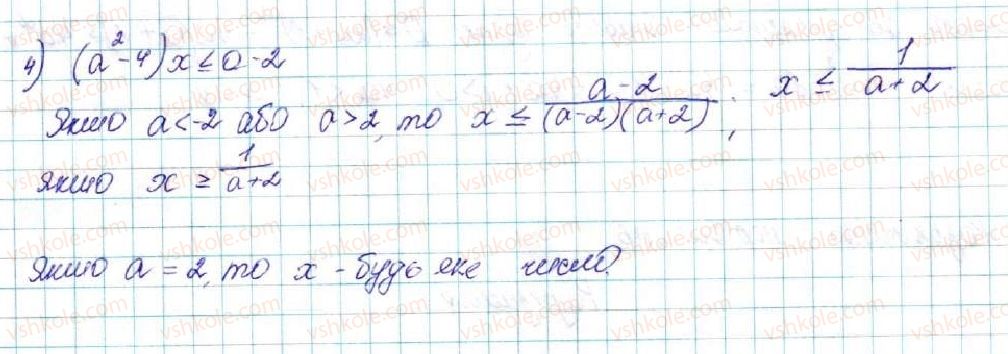 4) (a²-4)x ≤ a-2
Якщо a<-2 або a>2, то x ≤ (a-2)/((a-2)(a+2)); x ≤ 1/(a+2)
якщо x ≥ 1/(a+2)
Якщо a = 2, то x - будь яке число.
vshkole.com